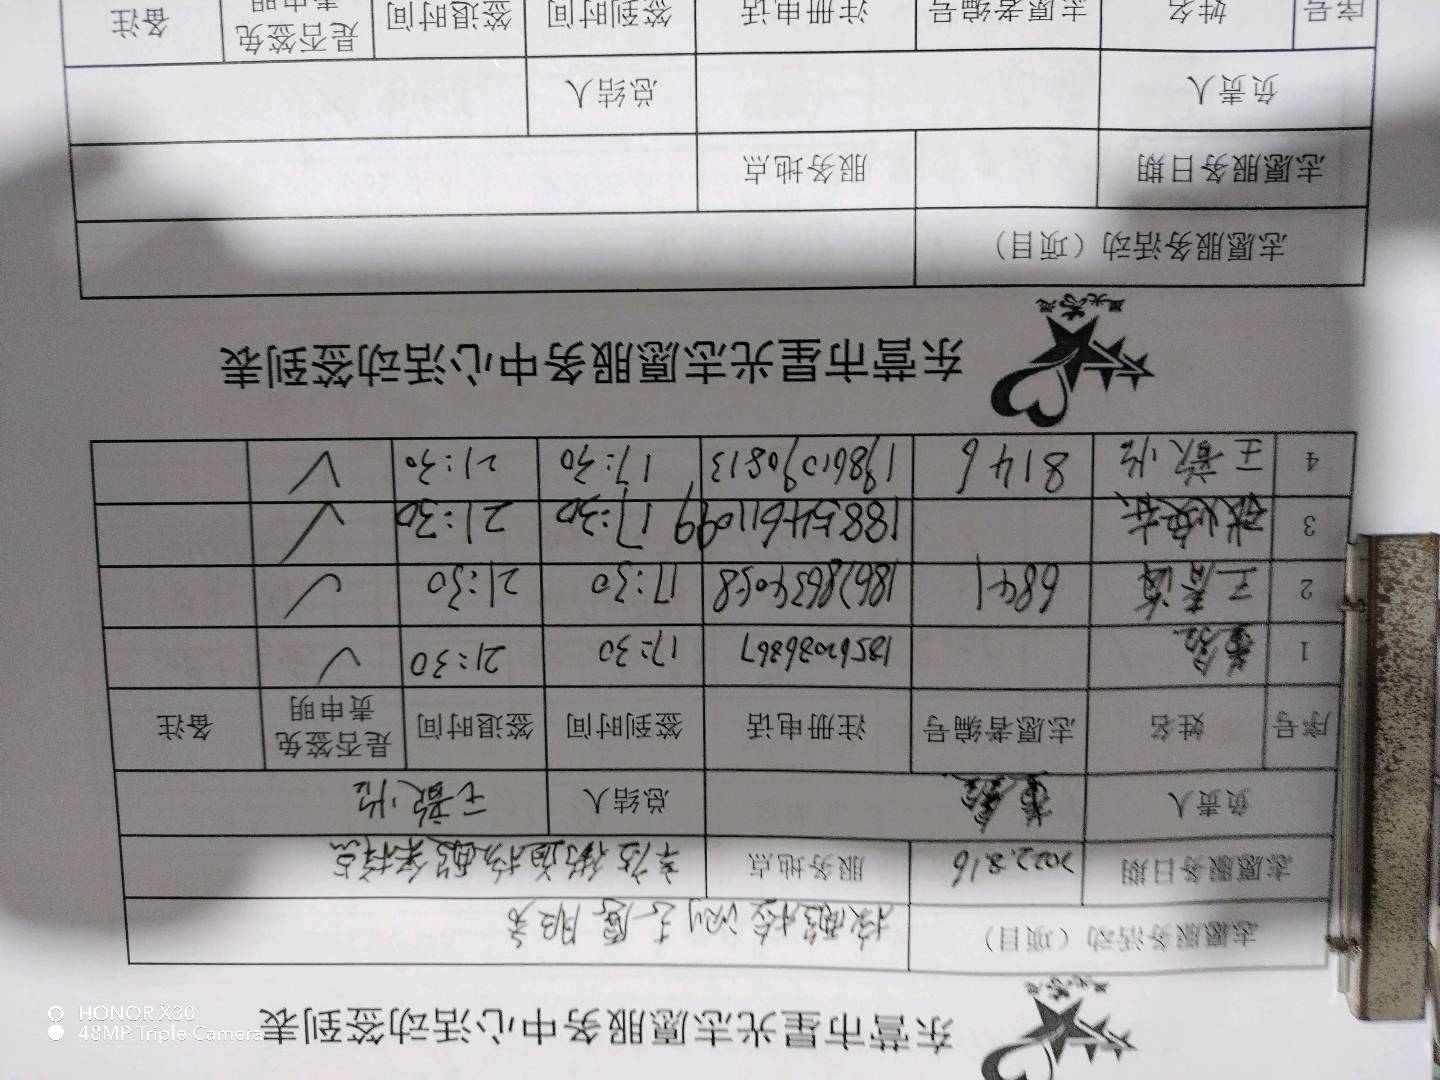 东营市星光志愿服务中心活动签到表
志愿服务活动（项目） 核酸检测志愿服务
志愿服务日期 2022.8.16 服务地点 街道核酸采样点
负责人 总结人 王敬怡
序号 姓名 志愿者编号 注册电话 签到时间 签退时间 是否签免责申明 备注
1 17:30 21:30 ✓
2 王春海 6841 18678634058 17:30 21:30 ✓
3 18854611099 17:30 21:30 ✓
4 王敬怡 8146 17:30 21:30 ✓
星光志愿
东营市星光志愿服务中心活动签到表
志愿服务活动（项目）
志愿服务日期 服务地点
负责人 总结人
序号 姓名 志愿者编号 注册电话 签到时间 签退时间 是否签免责申明 备注
HONOR X30
48MP Triple Camera